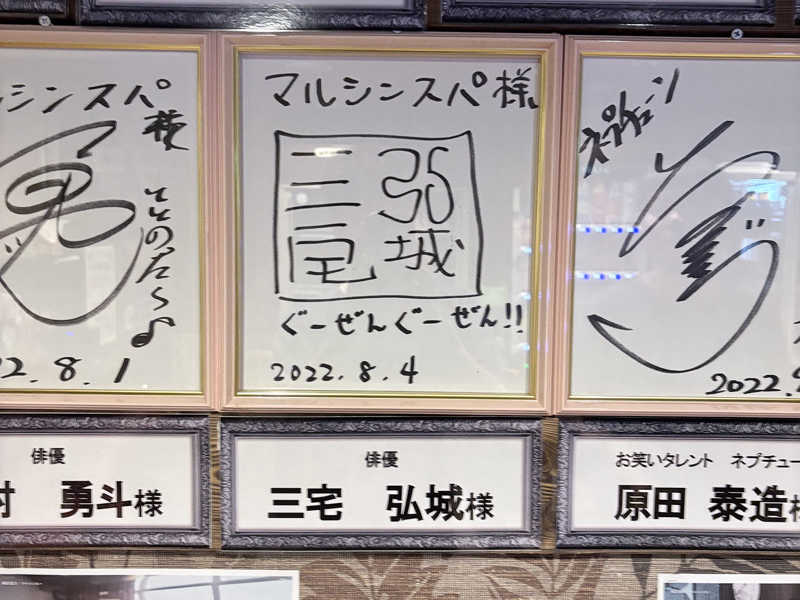 シンスパ
様
ととのた〜♪
2.8.1
俳優
勇斗様
マルシンスパ様
弘城
三宅
ぐーぜんぐーぜん!!
2022.8.4
俳優
三宅 弘城様
ネプチューン
2022.
お笑いタレント ネプチュー
原田 泰造様